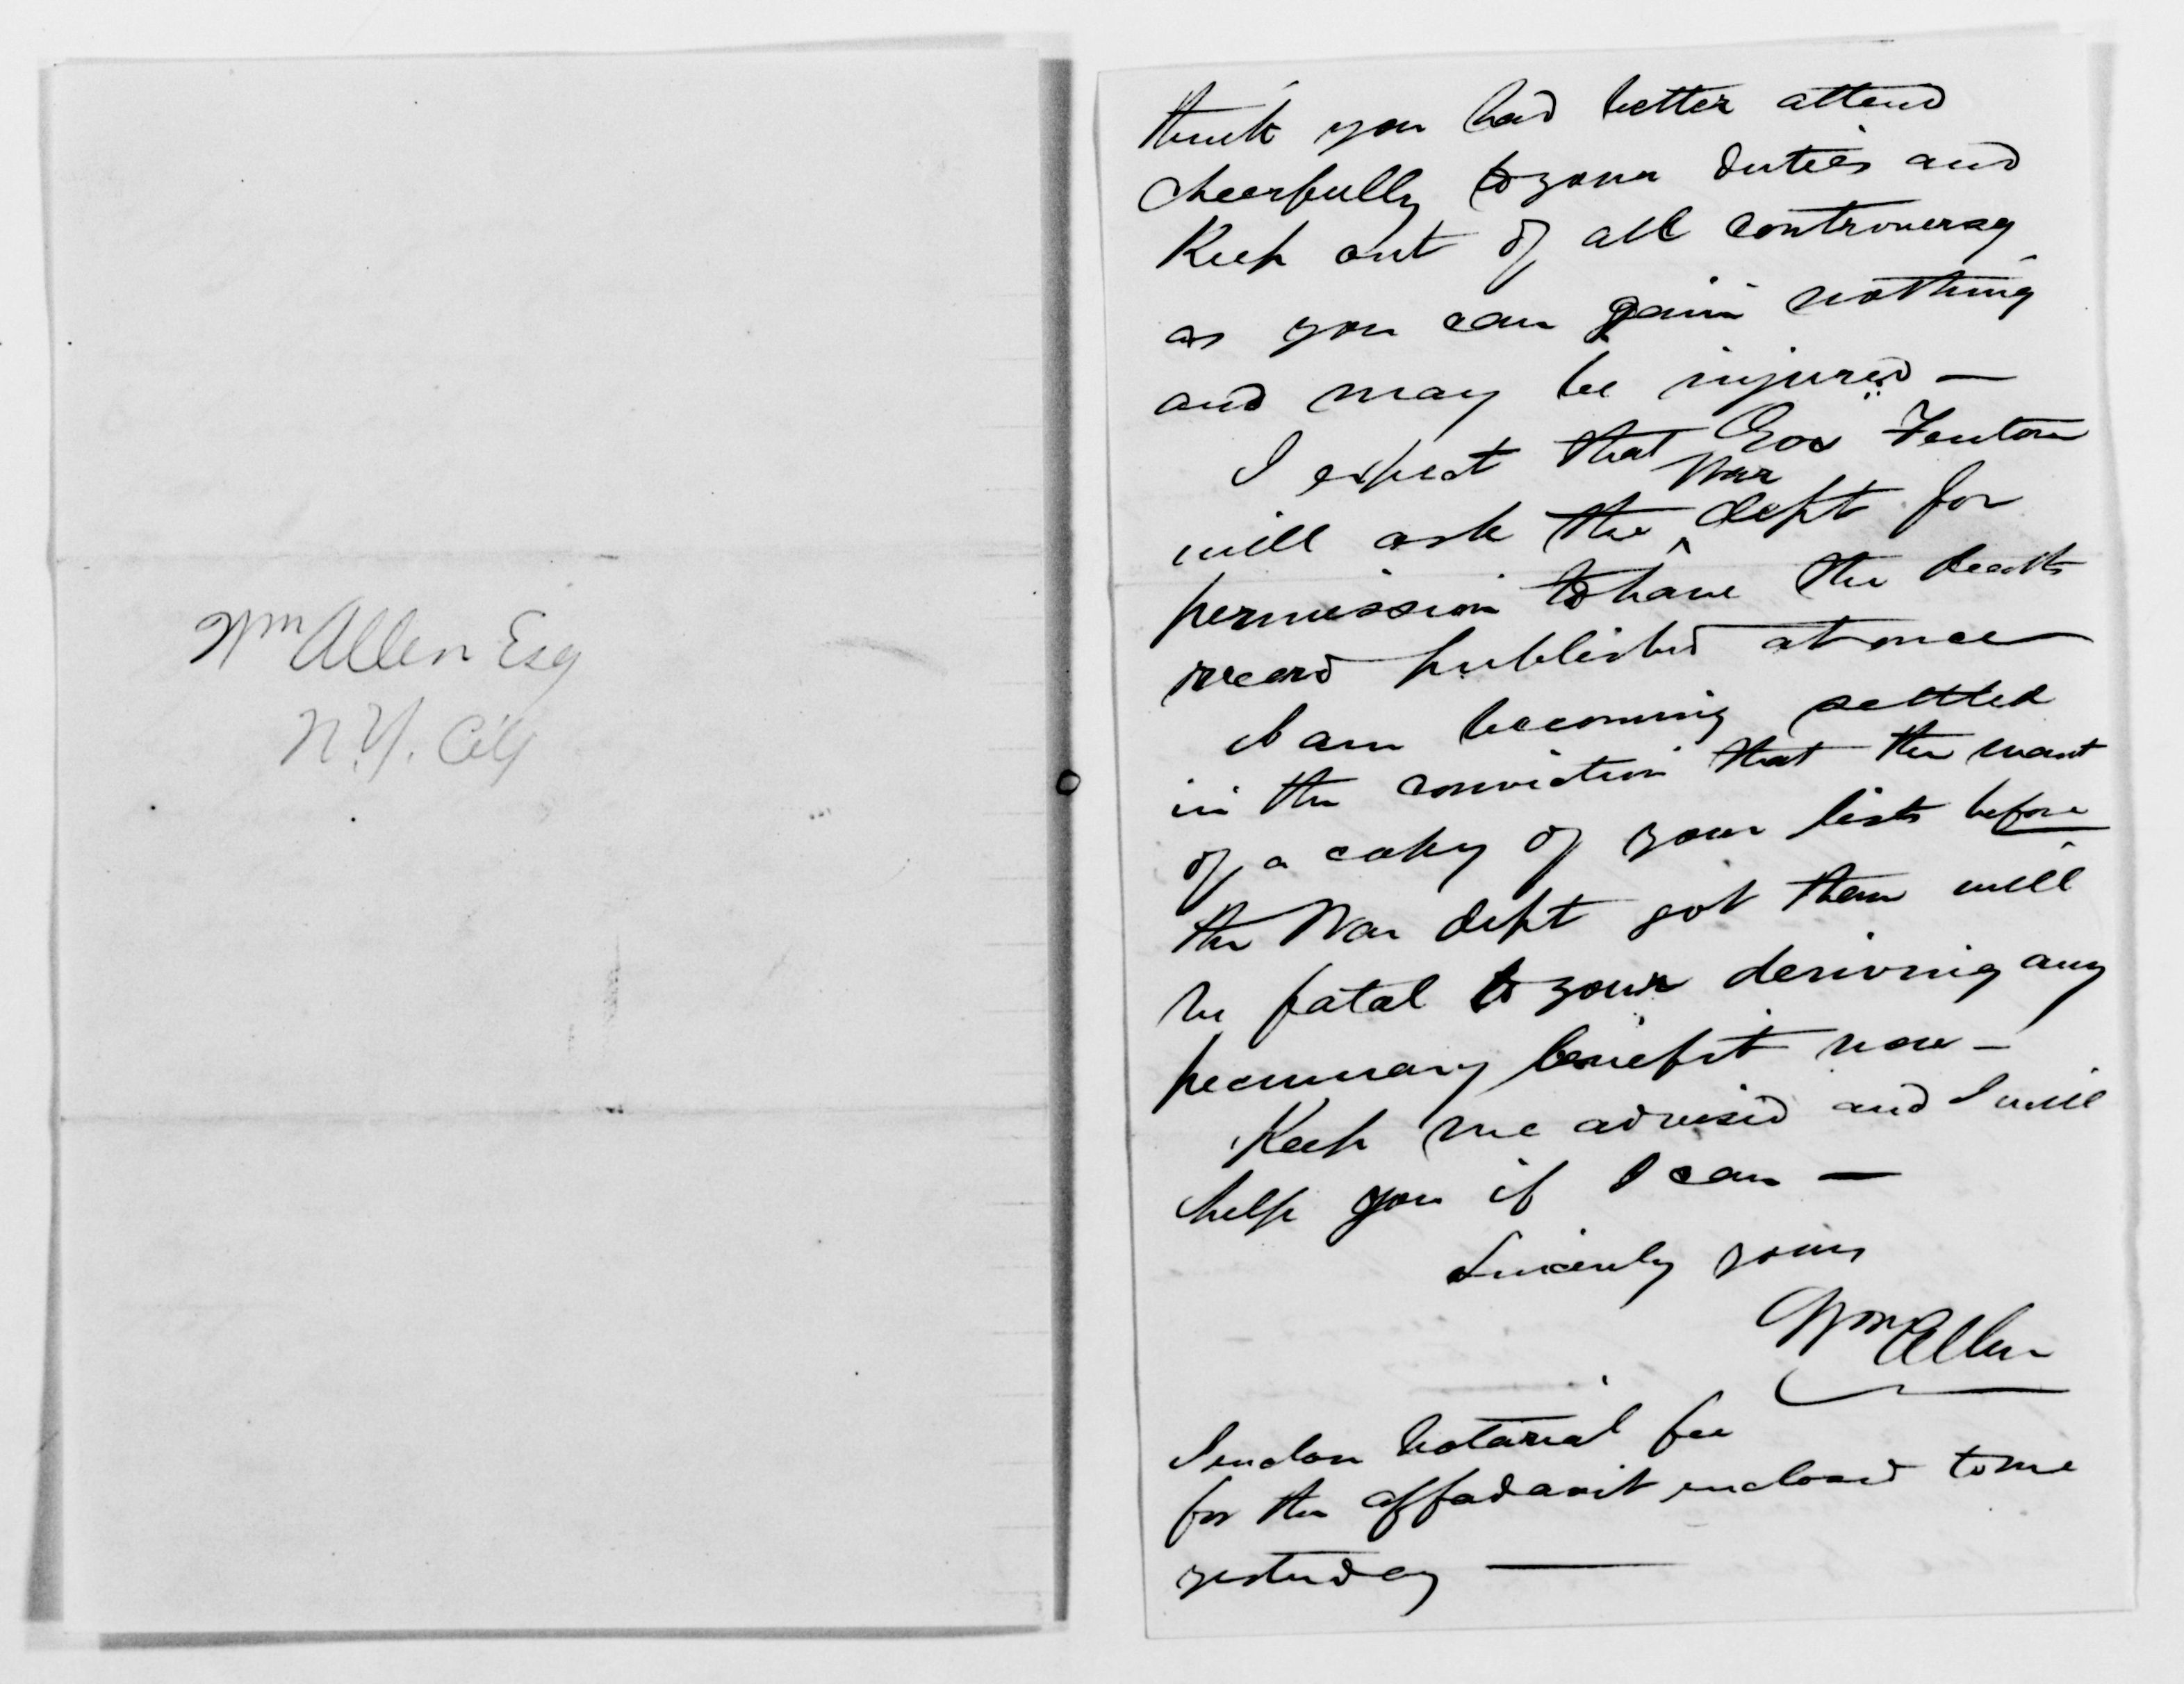 Wm Allen Esq
N.Y. City
think you had better attend
cheerfully to your duties and
Keep out of all controversy
as you can gain nothing
and may be injured —
I expect that Gov Fenton
War
will ask the ^ dept for
permission to have the death
record published at once
I am becoming settled
in the conviction that the want
of a copy of your lists before
the War dept got them will
be fatal to your deriving any
pecuniary benefit now —
Keep me advised and I will
help you if I can —
Sincerely yours
Wm Allen
I enclose notarial fee
for the affadavit enclosed to me
yesterday —